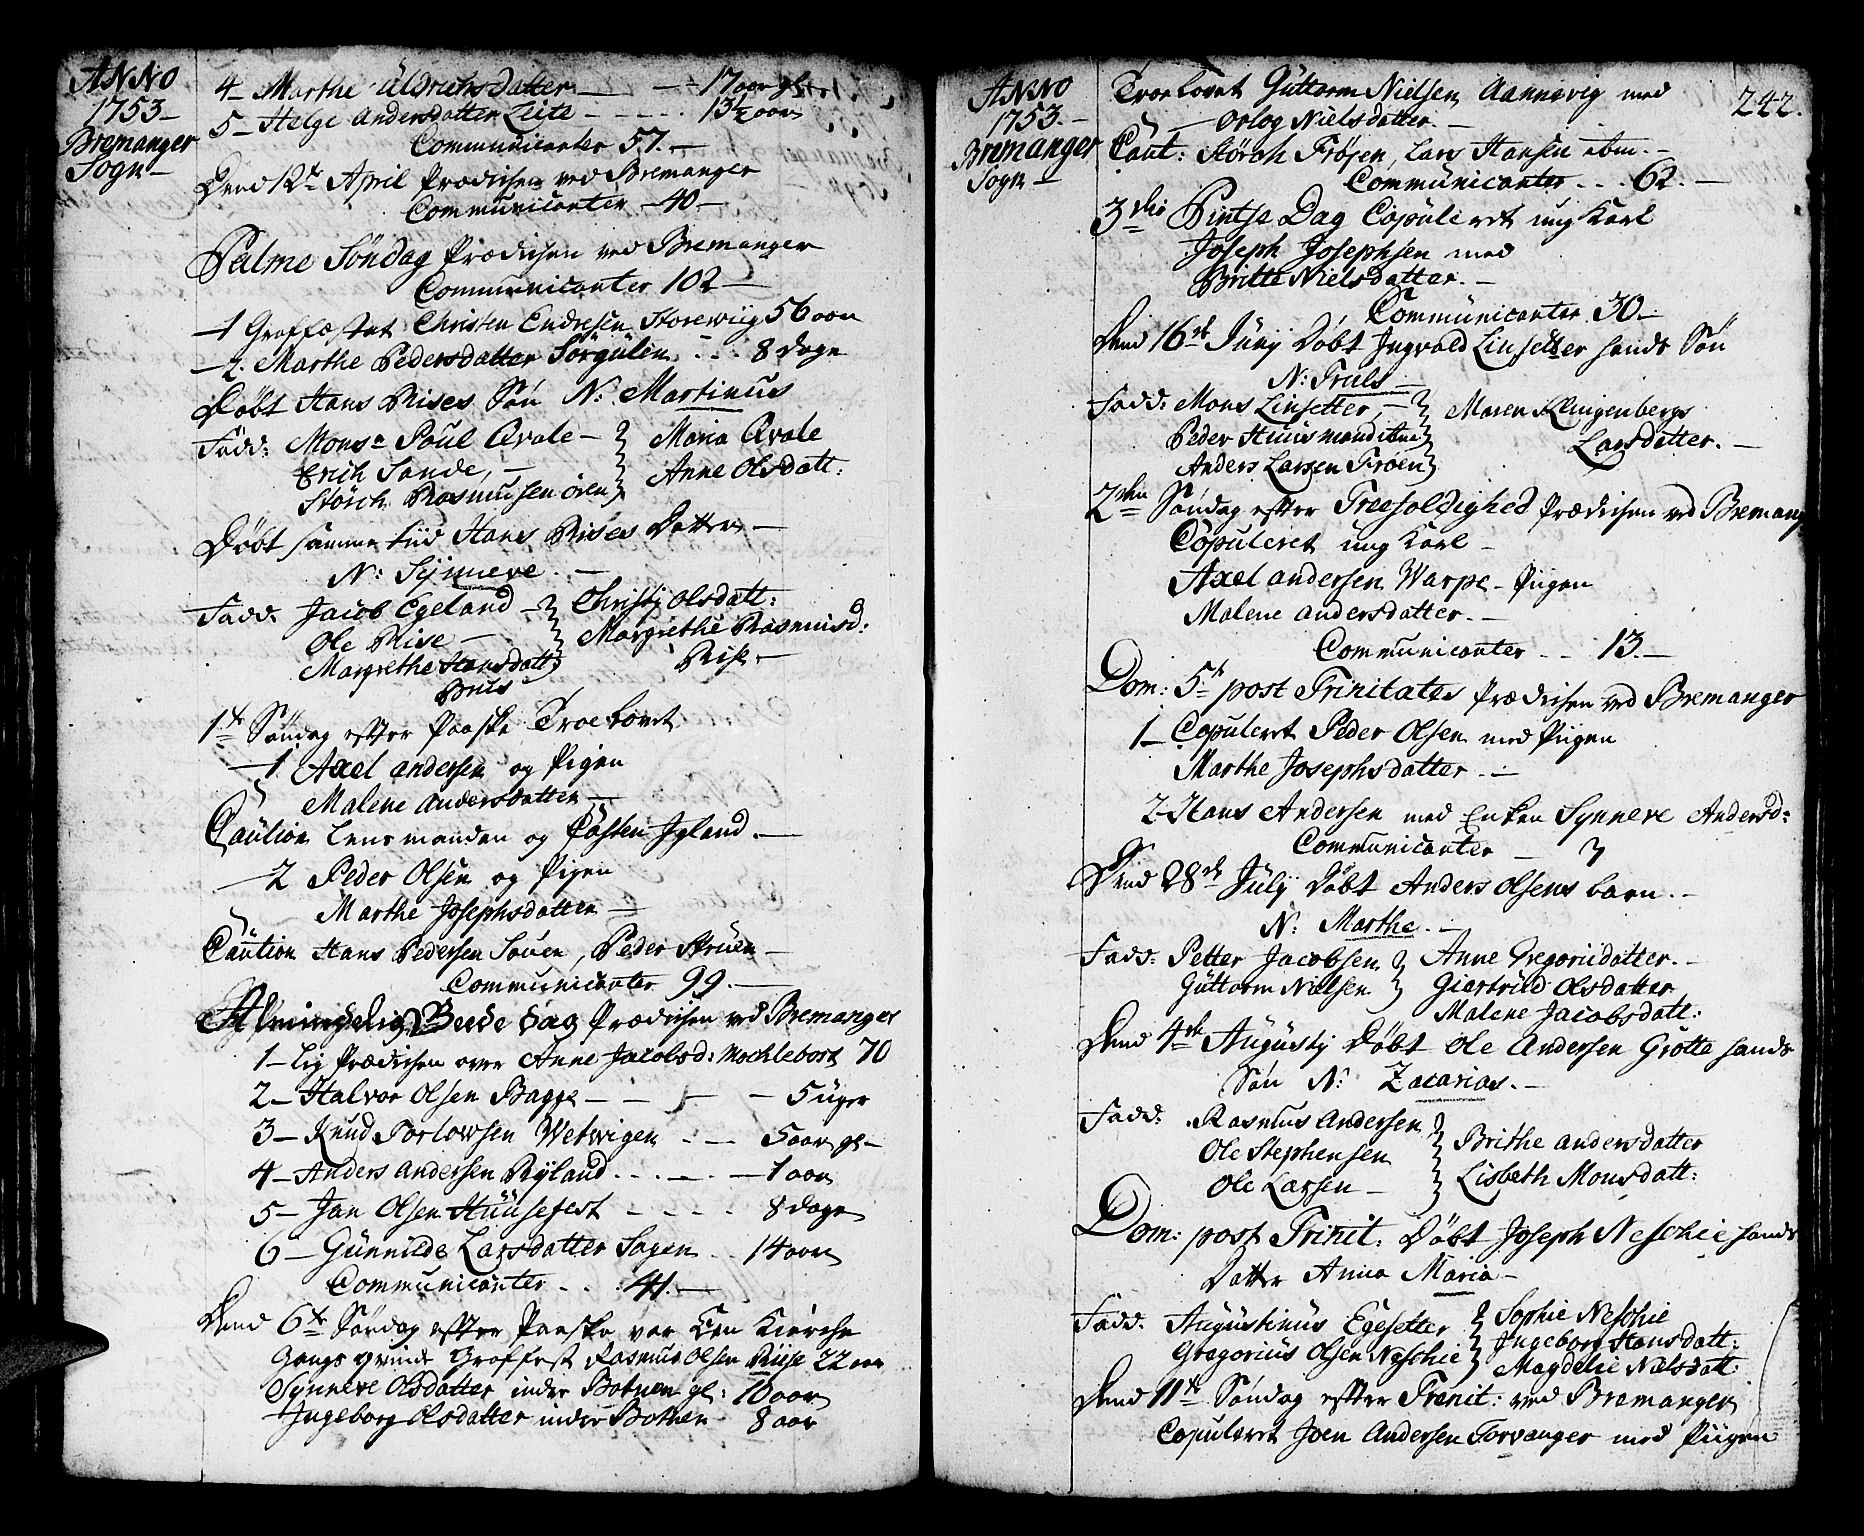 ANNO
1753-
Bremanger
Sogn-
4- Marthe Uldrichsdatter - - - 17 aar gl:
5- Helge Andersdatter Leite - - - - 13½ aar
Communicanter 57.-
Dend 12te April Prædichen ved Bremanger
Communicanter -40-
Palme Söndag Prædichen ved Bremanger
Communicanter 102-
-1 Graffæstet Christen Endresen Storewiig 56 aar
-2. Marthe Pedersdatter Sörgulen - - - 8 dage
Döbt Hans Rises Sön N: Martinus
Fadd: Monsr Paul Qvale - Maria Qvale
Erich Sande, - Anne Olsdatt:
Störch Rasmussen ören
Döbt samme tiid Hans Rises Datter -
N: Synneve -
Fadd: Jacob Egeland - Christj Olsdatt:
Ole Rise - Margrethe Rasmusd:
Margrethe Hansdatt: Rise -
1te Söndag efter Paaske Troelovet
-1 Axel andersen og Pigen
Malene andersdatter -
Caution Lensmanden og Igland. -
-2 Peder Olsen og Pigen
Marthe Josephsdatter -
Caution Hans Pedersen , Peder -
Communicanter 99. -
Almindelig Bede Dag Prædichen ved Bremanger
1- Lig Prædichen over Anne Jacobsd: Mochlebost 70
2- Halvor Olsen Bagge - - - - 5 uger
3- Knud Torlowsen Wetwigen - - 5 aar gl-
4- Anders Andersen Ryland - - - - 1 aar
5- Jan Olsen Huusefest - - - - 8 dage
6- Gunnilde Larsdatter Sagen - - 14 aar
Communicanter - - 41. -
Dend 6te Söndag efter Paaske var Kierche
Gangs Graffest Rasmus Olsen Riise 22 aar
Synneve Olsdatter indre Botnen gl: 10 aar
Ingeborg Olsdatter indre Bothen - 8 aar
ANNO
1753.-
Bremanger
Sogn-
242.
Troelovet Guttorm Nielsen Aannevig med
Orlog Nielsdatter. -
Caut: Störch Fröjen, Lars Hansen ibm. -
Communicanter - - 62. -
3die Pintse Dag Copuleret ung Karl
Joseph Josephsen med
Britte Nielsdatter. -
Communicanter 30 -
Dend 16de Junij Döbt Ingvald Linsetter hands Sön
N: Truls -
Fadd: Mons Linsetter, - Maren Klingenbergs
Peder Huusmand ibm Larsdatter. -
Anders Larsen Fröen
2den Söndag efter Treefoldighed Prædichen ved Bremang
Copuleret ung Karl -
Axel andersen Warpe - Piigen
Malene andersdatter. -
Communicanter - - 13. -
Dom: 5te post Trinitates Prædichen ved Bremanger
1- Copuleret Peder Olsen med Piigen
Marthe Josephsdatter. -
2- Hans Andersen med Enken Synneve Andersd:
Communicanter - 7
Dend 28de Julij Döbt Anders Olsens barn. -
N: Marthe. -
Fadd: Petter Jacobsen Anne Gregoriidatter. -
Guttorm Nielsen Giertrud Olsdatter
Malene Jacobsdatt:
Dend 4de Augustij Döbt Ole Andersen Grotte hands
Sön N: Zacarias. -
Fadd: Rasmus Andersen Brithe andersdatter
Ole Stephensen Lisbeth Monsdatt:
Ole Larsen -
Dom: post Trinit: Döbt Joseph Neschie hands
Datter Anna Maria -
Fadd: Augustinus Egesetter Sophie Neschie
Gregorius Olsen Neschie Ingeborg Hansdatt:
Magdelie Nielsdat:
Dend 11te Söndag efter Trenit: ved Bremanger
Copuleret Joen Andersen Torvanger med Piigen